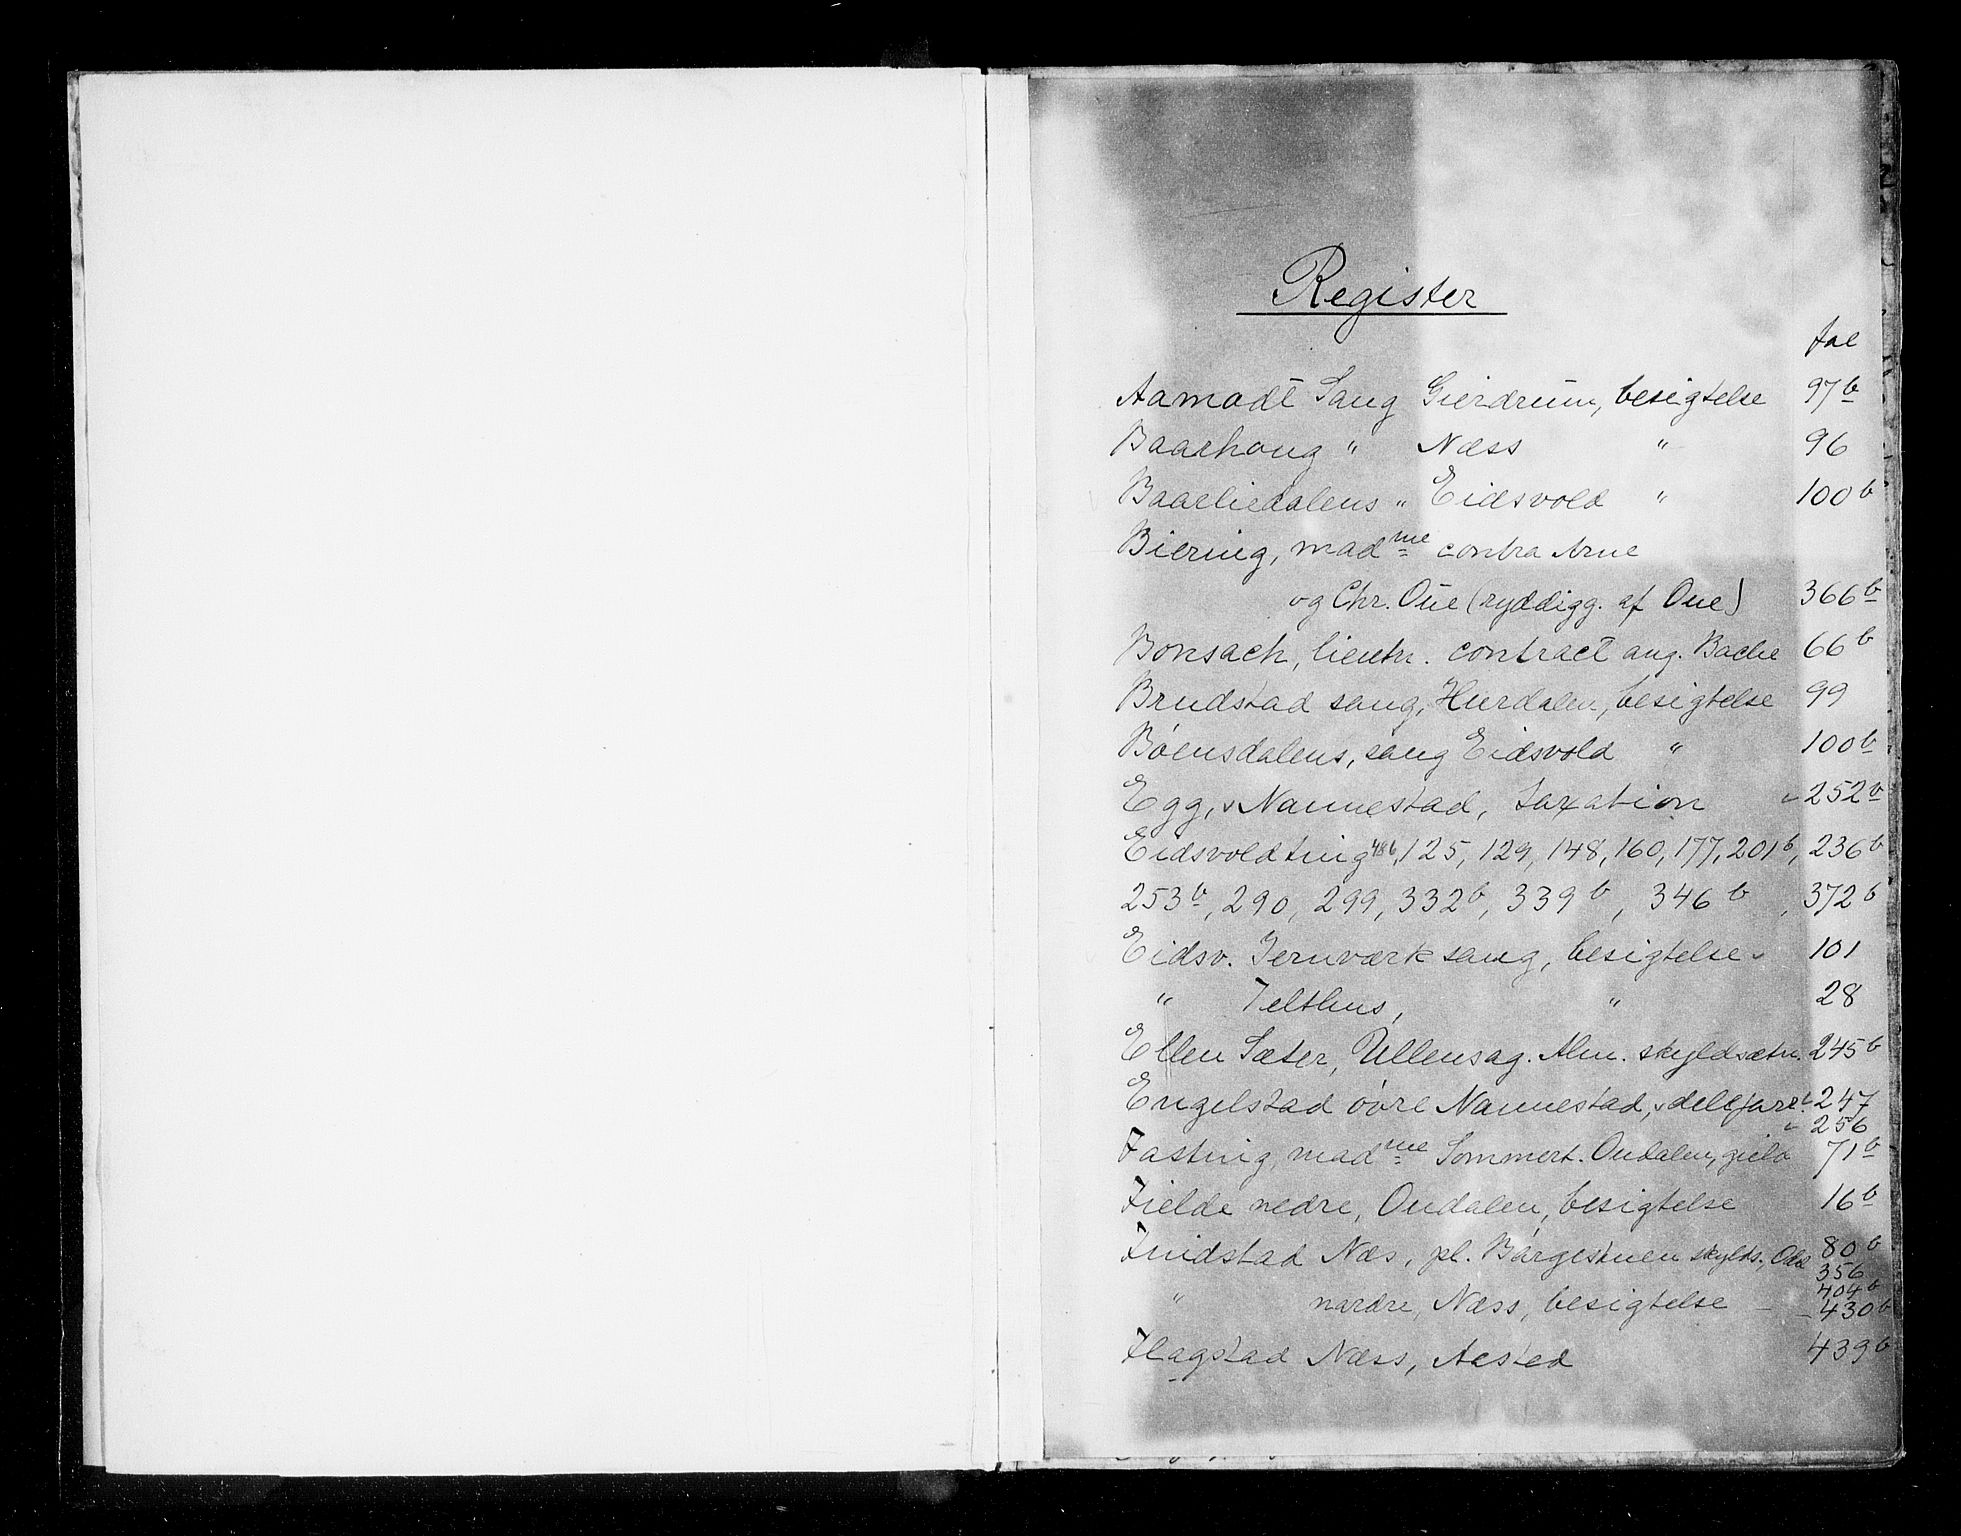 Register
fol
Aamodt Saug Gierdrum, besigtelse 97b
Baarhoug " Næss " 96
Baarliedalens " Eidsvold " 100b
Biering, madme contra Arne
og Chr. Oue (ryddigg. af Oue) 366b
Bonsach, lieutn. contract ang. Bache 66b
Brudstad saug, Hurdalen, besigtelse 99
Böensdalens, saug Eidsvold " 100b
Egg, Nannestad, taxation 252b
Eidsvoldting 48b, 125, 129, 148, 160, 177, 201b, 236b
253b, 290, 299, 332b, 339b, 346b, 372b
Eidsv. Jernværk saug, besigtelse 101
" Telthus, " 28
Ellen Sæter, Ullensag. Alm. skyldsætn. 245b
Engelstad övre Nannestad, delefare. 247
256
Fasting, madme Sommert. Oudalen, gield 71b
Fielde nedre, Oudalen, besigtelse 16b
Findstad Næs, pl. Börgestuen skylds., Odel 80b
356
404b
" nordre, Næss, besigtelse - 430b
Flagstad Næss, Aasted 439b